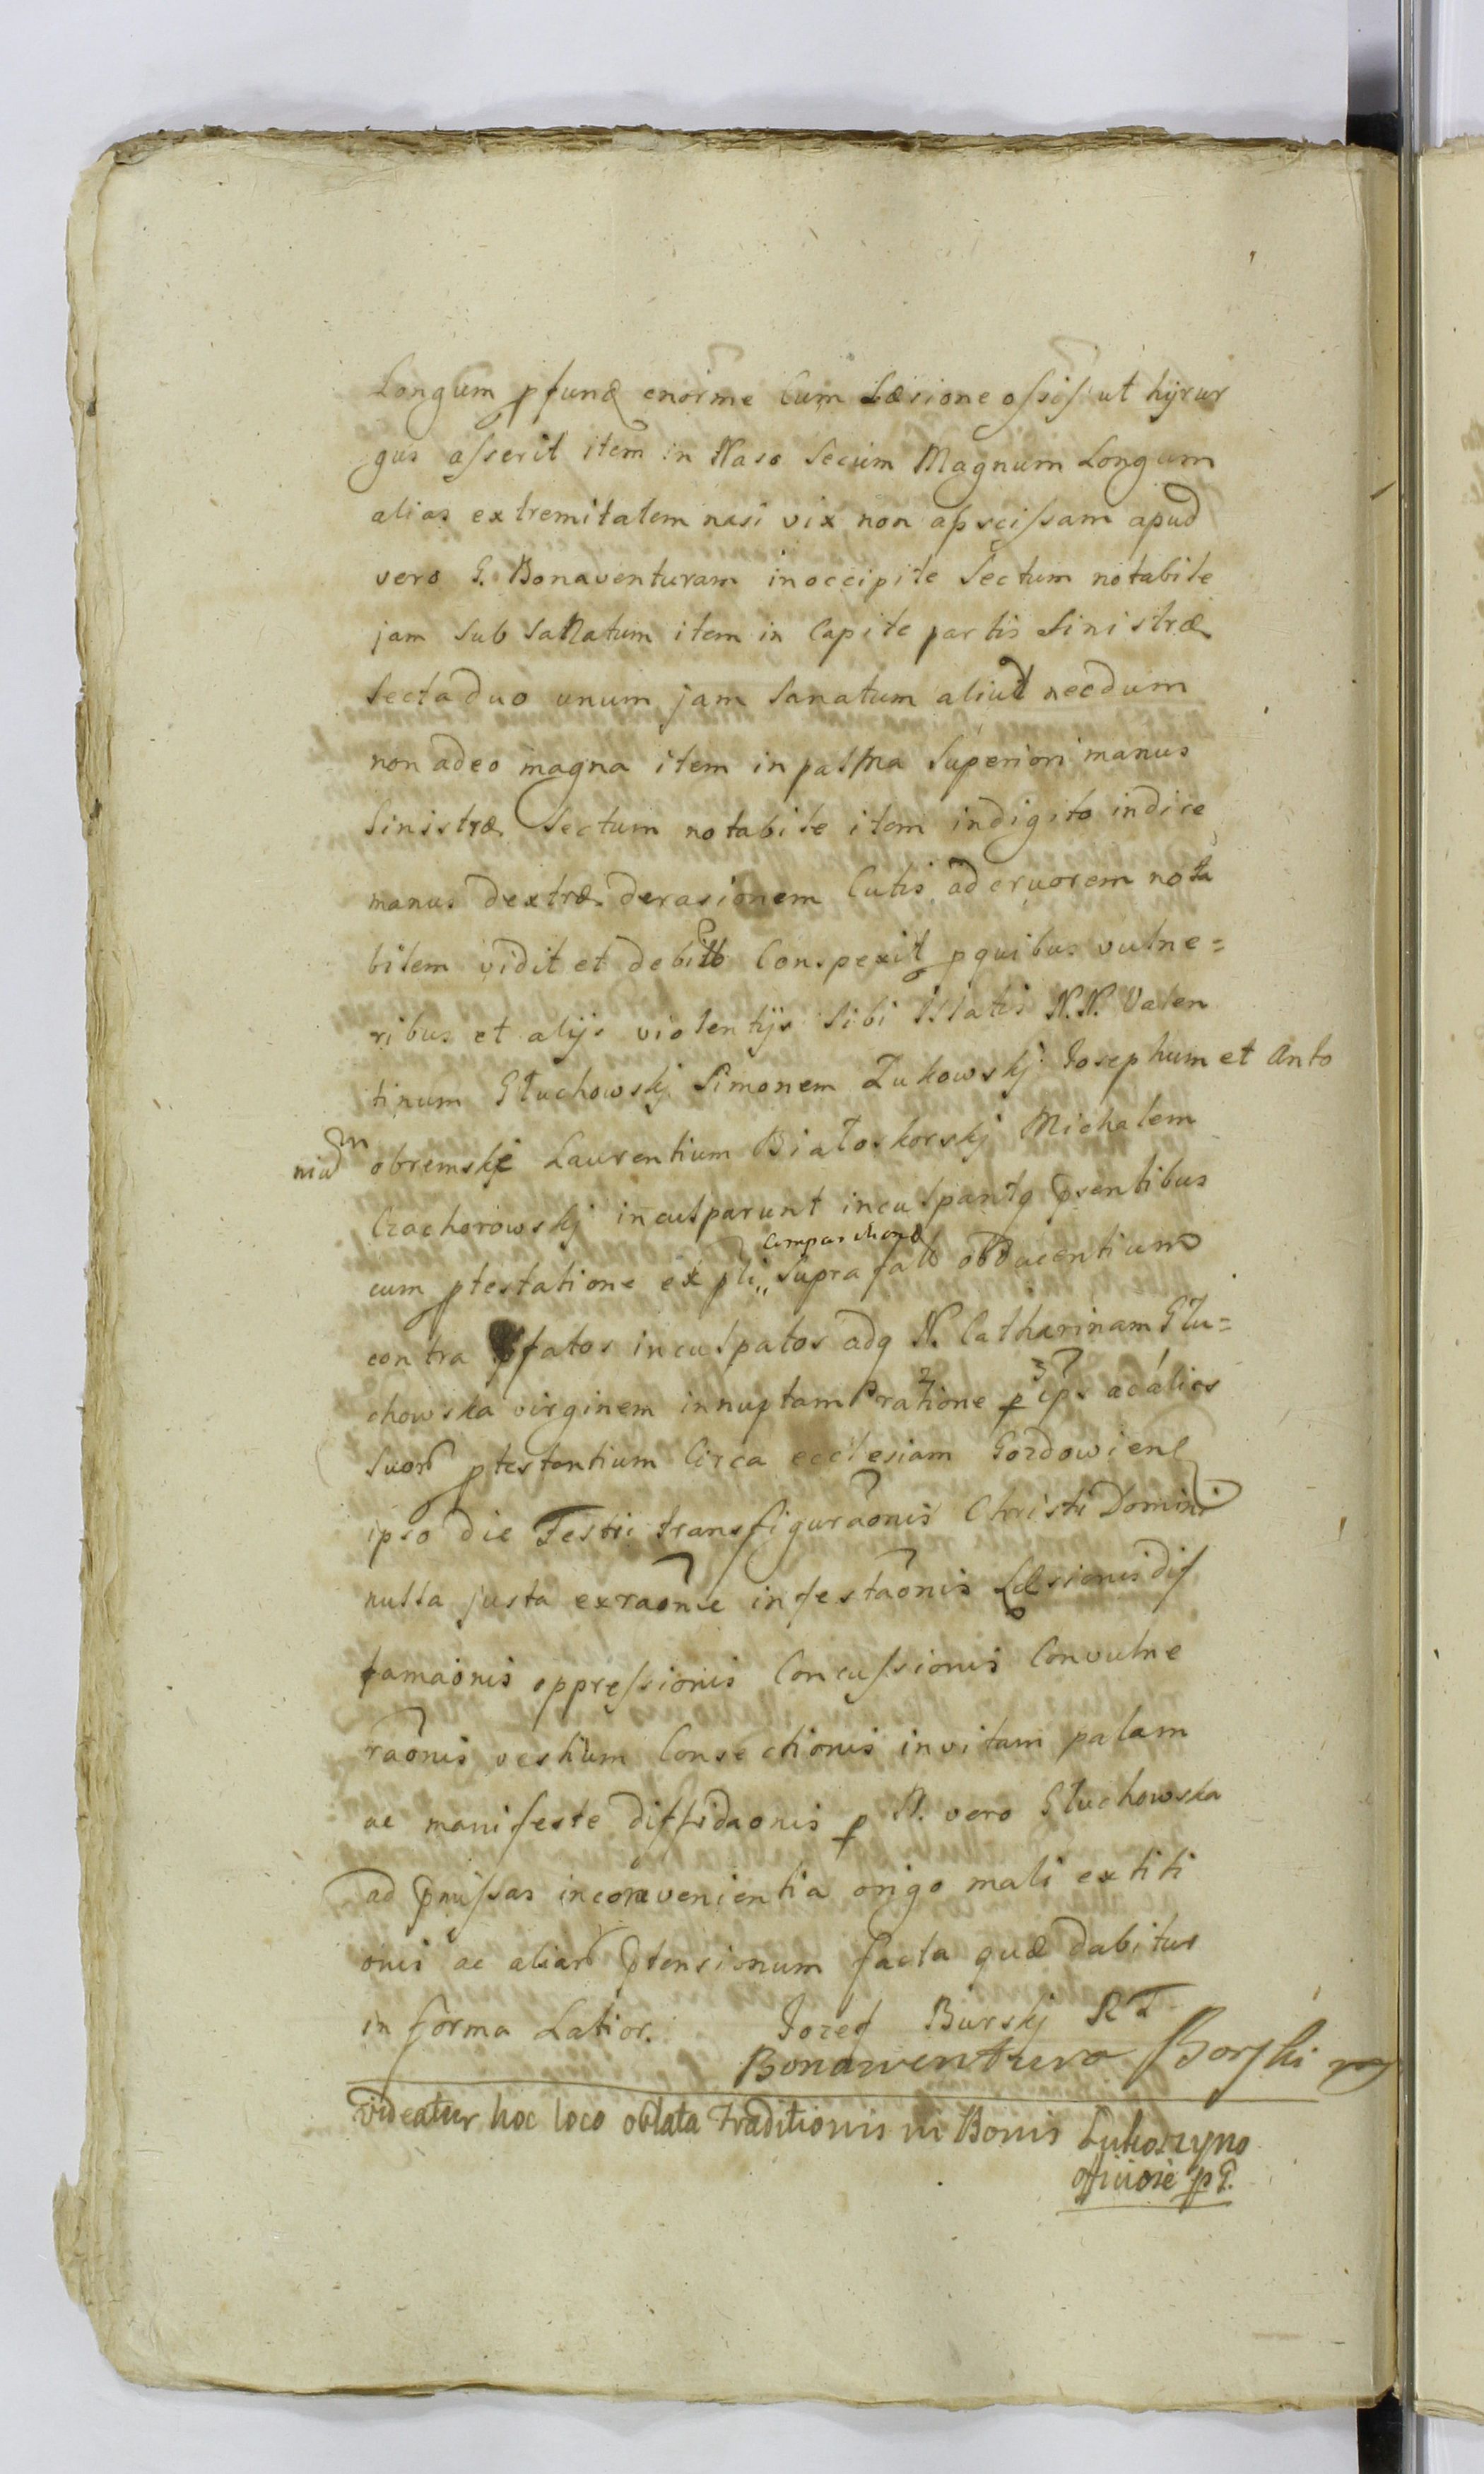 Longum pfund enorme Cum Læsione ossis ut hyrur
gus asserit item in Naso Secum Magnum Longum
alias extremitatem nasi vix non apscissam apud
vero G. Bonaventuram inoccipite Sectum notabile
jam Sub Sanatum item in Capite partis Sinistræ
Secta duo unum jam Sanatum aliud necdum
non adeo magna item in palma Superiori manus
Sinistræ Sectum notabile item indigito indice
manus dextræ derasionem Cutis ad cruorem nota
bilem vidit et debite Conspexit pquibus vulne=
ribus et alijs violentijs Sibi illatis N.N. Valen
tinum Głuchowskj Simonem Zukowskj Josephum et Anto
niu obremskie Laurentium Białoskorskj Michalem
Czachorowskj inculparunt inculpantq psentibus
comparitione
cum ptestatione ex pli Suprafat obducentium
contra pfatos inculpatos adq N. Catharinam Głu=
chowska virginem innuptam ratione ac alios
Suor ptestantium Circa ecclesiam Gozdowien
ipso die Festi transfiguraonis Christi Domini
nulla justa exraone infestaonis Læsionis dif
famaionis oppressionis Concussionis Convulne
raonis vestium Consectionis invitam palam
ac manifeste diffidaonis p N. vero Głuchowska
ad pmissas inconvenientia origo mali extiti
onis ac aliar ptensionum facta quæ dabitur
in forma Latior. Jozef Burskj RT
Bonawentura Borski mp
videatur hoc loco oblata traditionis in Bonis Lukoszyno
officiose p G.